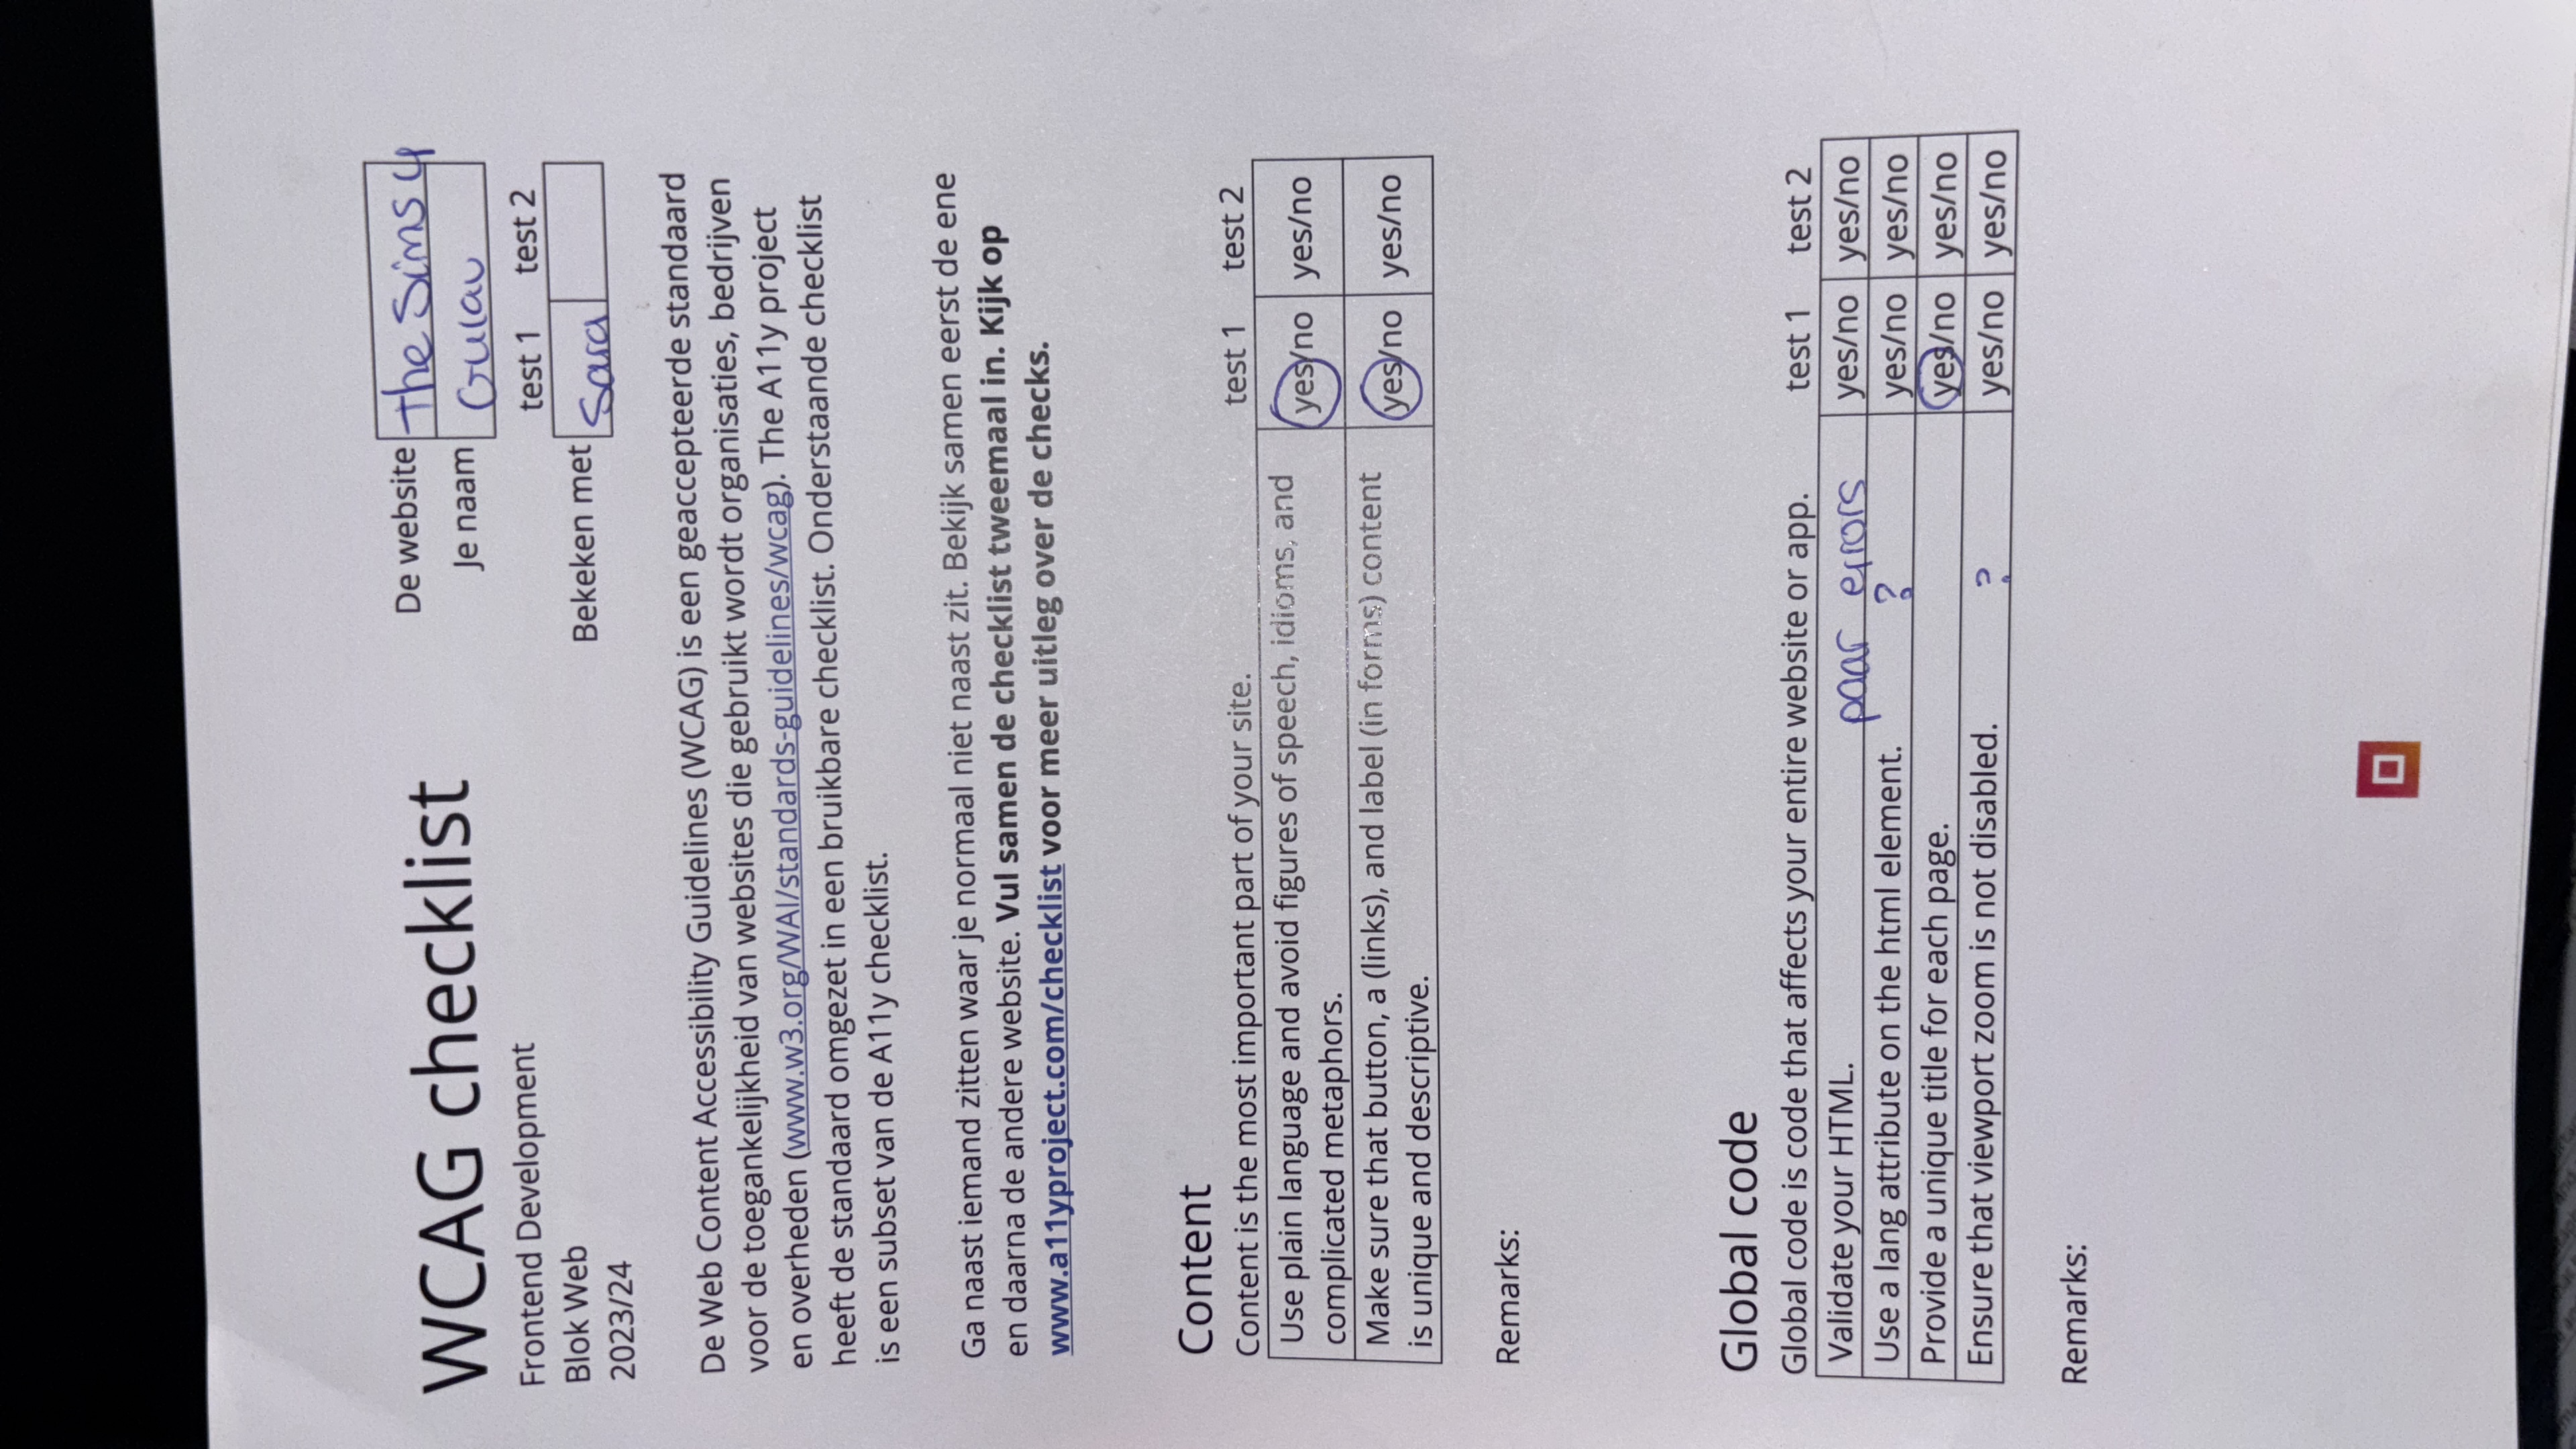 WCAG checklist
Frontend Development
Blok Web
2023/24
De website The Sims 4
Je naam Gulav
test 1 test 2
Bekeken met Sara
De Web Content Accessibility Guidelines (WCAG) is een geaccepteerde standaard
voor de toegankelijkheid van websites die gebruikt wordt organisaties, bedrijven
en overheden (www.w3.org/WAI/standards-guidelines/wcag). The A11y project
heeft de standaard omgezet in een bruikbare checklist. Onderstaande checklist
is een subset van de A11y checklist.
Ga naast iemand zitten waar je normaal niet naast zit. Bekijk samen eerst de ene
en daarna de andere website. Vul samen de checklist tweemaal in. Kijk op
www.a11yproject.com/checklist voor meer uitleg over de checks.
Content
Content is the most important part of your site. test 1 test 2
Use plain language and avoid figures of speech, idioms, and
complicated metaphors. yes/no yes/no
Make sure that button, a (links), and label (in forms) content
is unique and descriptive. yes/no yes/no
Remarks:
Global code
Global code is code that affects your entire website or app. test 1 test 2
Validate your HTML. paar errors yes/no yes/no
Use a lang attribute on the html element. ? yes/no yes/no
Provide a unique title for each page. yes/no yes/no
Ensure that viewport zoom is not disabled. ? yes/no yes/no
Remarks: